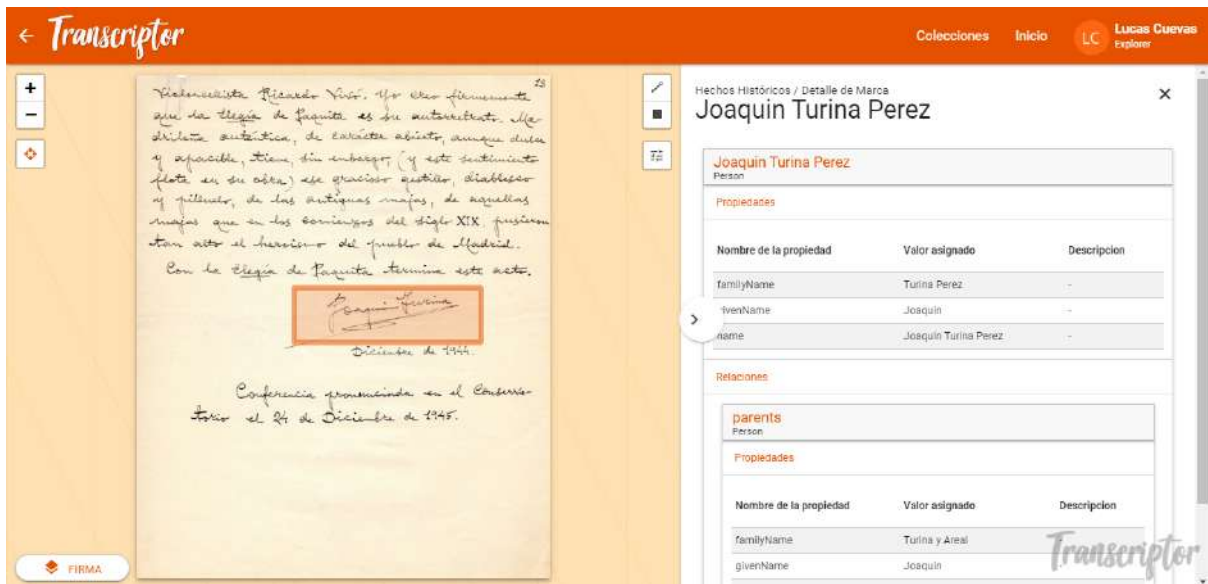 Transcriptor
Colecciones
Inicio
LC
Lucas Cuevas
Explorer
+
-
13
Violoncellista Ricardo Vivó. Yo creo firmemente
que la Elegía de Paquita es su autorretrato. Ma-
drileña auténtica, de carácter abierto, aunque dulce
y apacible, tiene, sin embargo, (y este sentimiento
flota en su obra) ese gracioso gestillo, diablesco
y pilluelo, de las antiguas majas, de aquellas
majas que en los comienzos del siglo XIX, pusieron
tan alto el heroismo del pueblo de Madrid.
Con la Elegía de Paquita termina este acto.
Joaquin Turina
Diciembre de 1944.
Conferencia pronunciada en el Conserva-
torio el 24 de Diciembre de 1945.
FIRMA
Hechos Históricos / Detalle de Marca
Joaquin Turina Perez
Joaquin Turina Perez
Person
Propiedades
Nombre de la propiedad Valor asignado Descripcion
familyName Turina Perez -
givenName Joaquin -
name Joaquin Turina Perez -
Relaciones
parents
Person
Propiedades
Nombre de la propiedad Valor asignado Descripcion
familyName Turina y Areal
givenName Joaquin
Transcriptor